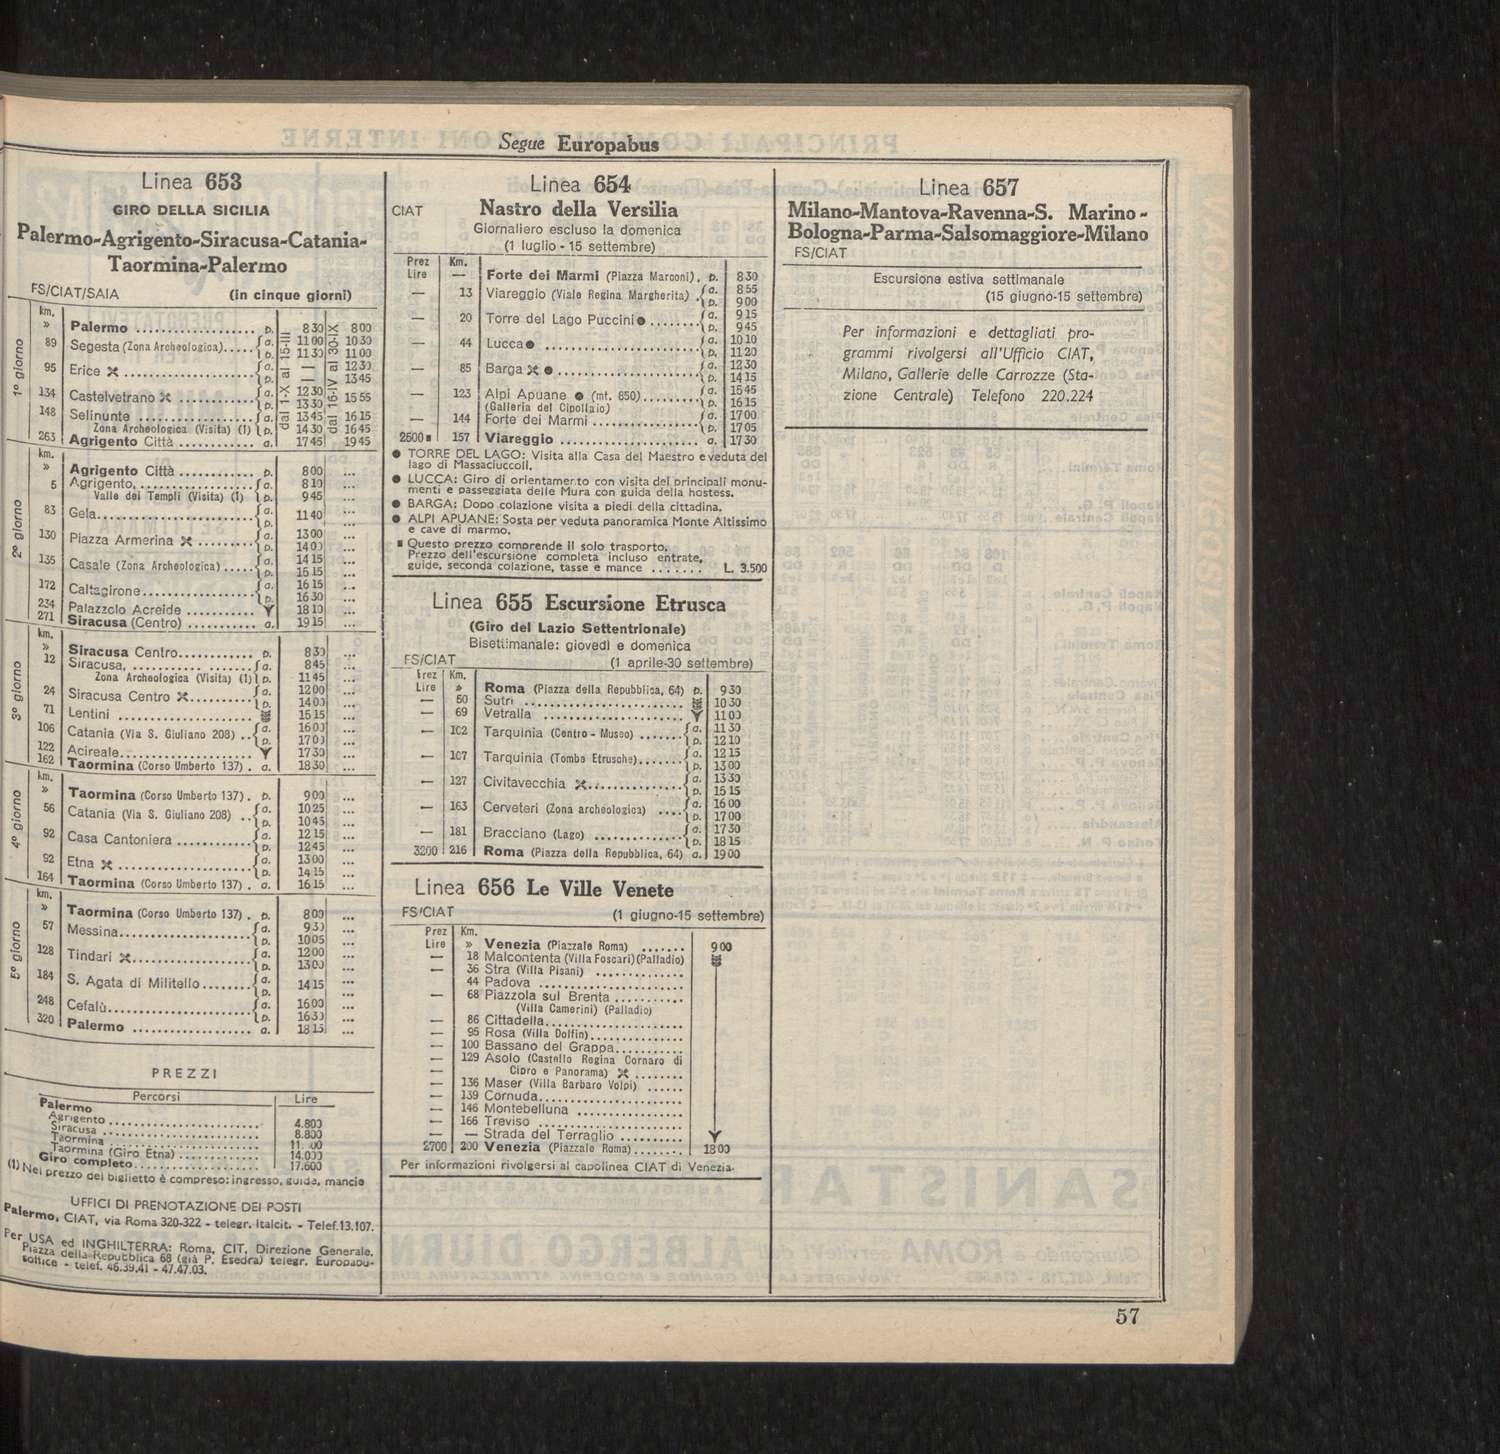 Segue Europabus
Linea 653
GIRO DELLA SICILIA
Palermo-Agrigento-Siracusa-Catania-
Taormina-Palermo
FS/CIAT/SAIA (in cinque giorni)
1º giorno
dal 1-X al 15-III
dal 16-IV al 30-IX
km.
» Palermo .................. p. 8 30 8 00
89 Segesta (Zona Archeologica)..... a. 11 00 10 30
p. 11 30 11 00
95 Erice ................... a. — 12 30
p. — 13 45
134 Castelvetrano ........... a. 12 30 15 55
p. 13 30
148 Selinunte ................. a. 13 45 16 15
Zona Archeologica (Visita) (1) p. 14 30 16 45
263 Agrigento Città ............ a. 17 45 19 45
2º giorno
km.
» Agrigento Città ............ p. 8 00 ...
5 Agrigento.................. a. 8 10 ...
Valle dei Templi (Visita) (1) p. 9 45 ...
83 Gela....................... a. 11 40 ...
p. ...
130 Piazza Armerina ......... a. 13 00 ...
p. 14 00 ...
135 Casale (Zona Archeologica) ..... a. 14 15 ...
p. 15 15 ...
172 Caltagirone................. a. 16 15 ...
p. 16 30 ...
234 Palazzolo Acreide .......... 18 10 ...
271 Siracusa (Centro) ........... a. 19 15 ...
3º giorno
km.
» Siracusa Centro............ p. 8 30 ...
12 Siracusa, .......... ...... a. 8 45 ...
Zona Archeologica (Visita) (1) p. 11 45 ...
24 Siracusa Centro ......... a. 12 00 ...
p. 14 00 ...
71 Lentini .................... 15 15 ...
106 Catania (Via S. Giuliano 208) .. a. 16 00 ...
p. 17 00 ...
122 Acireale.................... 17 30 ...
162 Taormina (Corso Umberto 137) . a. 18 30 ...
4º giorno
km.
» Taormina (Corso Umberto 137) . p. 9 00 ...
56 Catania (Via S. Giuliano 208) .. a. 10 25 ...
p. 10 45 ...
92 Casa Cantoniera ............ a. 12 15 ...
p. 12 45 ...
92 Etna .................... a. 13 00 ...
p. 14 15 ...
164 Taormina (Corso Umberto 137) . a. 16 15 ...
5º giorno
km.
» Taormina (Corso Umberto 137) . p. 8 00 ...
57 Messina.................... a. 9 30 ...
p. 10 05 ...
128 Tindari ................... a. 12 00 ...
p. 13 00 ...
184 S. Agata di Militello........ a. 14 15 ...
p. ...
248 Cefalù...................... a. 16 00 ...
p. 16 30 ...
320 Palermo .................. a. 18 15 ...
PREZZI
Percorsi Lire
Palermo
Agrigento ........................ 4.800
Siracusa ......................... 8.800
Taormina .........................
Taormina (Giro Etna) ............. 14.000
Giro completo.................... 17.600
(1) Nel prezzo del biglietto è compreso: ingresso, guida, mancie
UFFICI DI PRENOTAZIONE DEI POSTI
Palermo, CIAT, via Roma 320-322 - telegr. Italcit. - Telef.13.107.
Per USA ed INGHILTERRA: Roma, CIT, Direzione Generale,
Piazza della Repubblica 68 (già P. Esedra) telegr. Europabu-
soffice - telef. 46.39.41 - 47.47.03.
Linea 654
CIAT Nastro della Versilia
Giornaliero escluso la domenica
(1 luglio - 15 settembre)
Prez Km.
Lire — Forte dei Marmi (Piazza Marconi). p. 8 30
— 13 Viareggio (Viale Regina Margherita) . a. 8 55
p. 9 00
— 20 Torre del Lago Puccini●....... a. 9 15
p. 9 45
— 44 Lucca● ...................... a. 10 10
p. 11 20
— 85 Barga ● .................... a. 12 30
p. 14 15
— 123 Alpi Apuane ● (mt. 650)........ a. 15 45
(Galleria del Cipollaio) p. 16 15
— 144 Forte dei Marmi .............. a. 17 00
p. 17 05
2500■ 157 Viareggio .................... a. 17 30
● TORRE DEL LAGO: Visita alla Casa del Maestro e veduta del
lago di Massaciuccoli.
● LUCCA: Giro di orientamento con visita dei principali monu-
menti e passeggiata delle Mura con guida della hostess.
● BARGA: Dopo colazione visita a piedi della cittadina.
● ALPI APUANE: Sosta per veduta panoramica Monte Altissimo
e cave di marmo.
■ Questo prezzo comprende il solo trasporto.
Prezzo dell'escursione completa incluso entrate,
guide, seconda colazione, tasse e mance ....... L. 3.500
Linea 655 Escursione Etrusca
(Giro del Lazio Settentrionale)
Bisettimanale: giovedì e domenica
FS/CIAT (1 aprile-30 settembre)
Prez Km.
Lire » Roma (Piazza della Repubblica, 64) p. 9 30
— 50 Sutri ........................ 10 30
— 69 Vetralla ..................... 11 00
— 102 Tarquinia (Centro - Museo) ....... a. 11 30
p. 12 10
— 107 Tarquinia (Tombe Etrusche)....... a. 12 15
p. 13 00
— 127 Civitavecchia ............... a. 13 30
p. 15 15
— 163 Cerveteri (Zona archeologica) .... a. 16 00
p. 17 00
— 181 Bracciano (Lago) .............. a. 17 30
p. 18 15
3200 216 Roma (Piazza della Repubblica, 64) a. 19 00
Linea 656 Le Ville Venete
FS/CIAT (1 giugno-15 settembre)
Prez Km.
Lire » Venezia (Piazzale Roma) ....... 9 00
— 18 Malcontenta (Villa Foscari)(Palladio)
— 36 Stra (Villa Pisani) .............
44 Padova .......................
— 68 Piazzola sul Brenta ...........
(Villa Camerini) (Palladio)
— 86 Cittadella......................
— 95 Rosa (Villa Dolfin)...............
— 100 Bassano del Grappa...........
— 129 Asolo (Castello Regina Cornaro di
— Cipro e Panorama) ........
— 136 Maser (Villa Barbaro Volpi) ......
— 139 Cornuda.......................
— 146 Montebelluna .................
— 166 Treviso .......................
— — Strada del Terraglio ..........
2700 200 Venezia (Piazzale Roma)........ 18 00
Per informazioni rivolgersi al capolinea CIAT di Venezia.
Linea 657
Milano-Mantova-Ravenna-S. Marino-
Bologna-Parma-Salsomaggiore-Milano
FS/CIAT
Escursione estiva settimanale
(15 giugno-15 settembre)
Per informazioni e dettagliati pro-
grammi rivolgersi all'Ufficio CIAT,
Milano, Gallerie delle Carrozze (Sta-
zione Centrale) Telefono 220.224
57